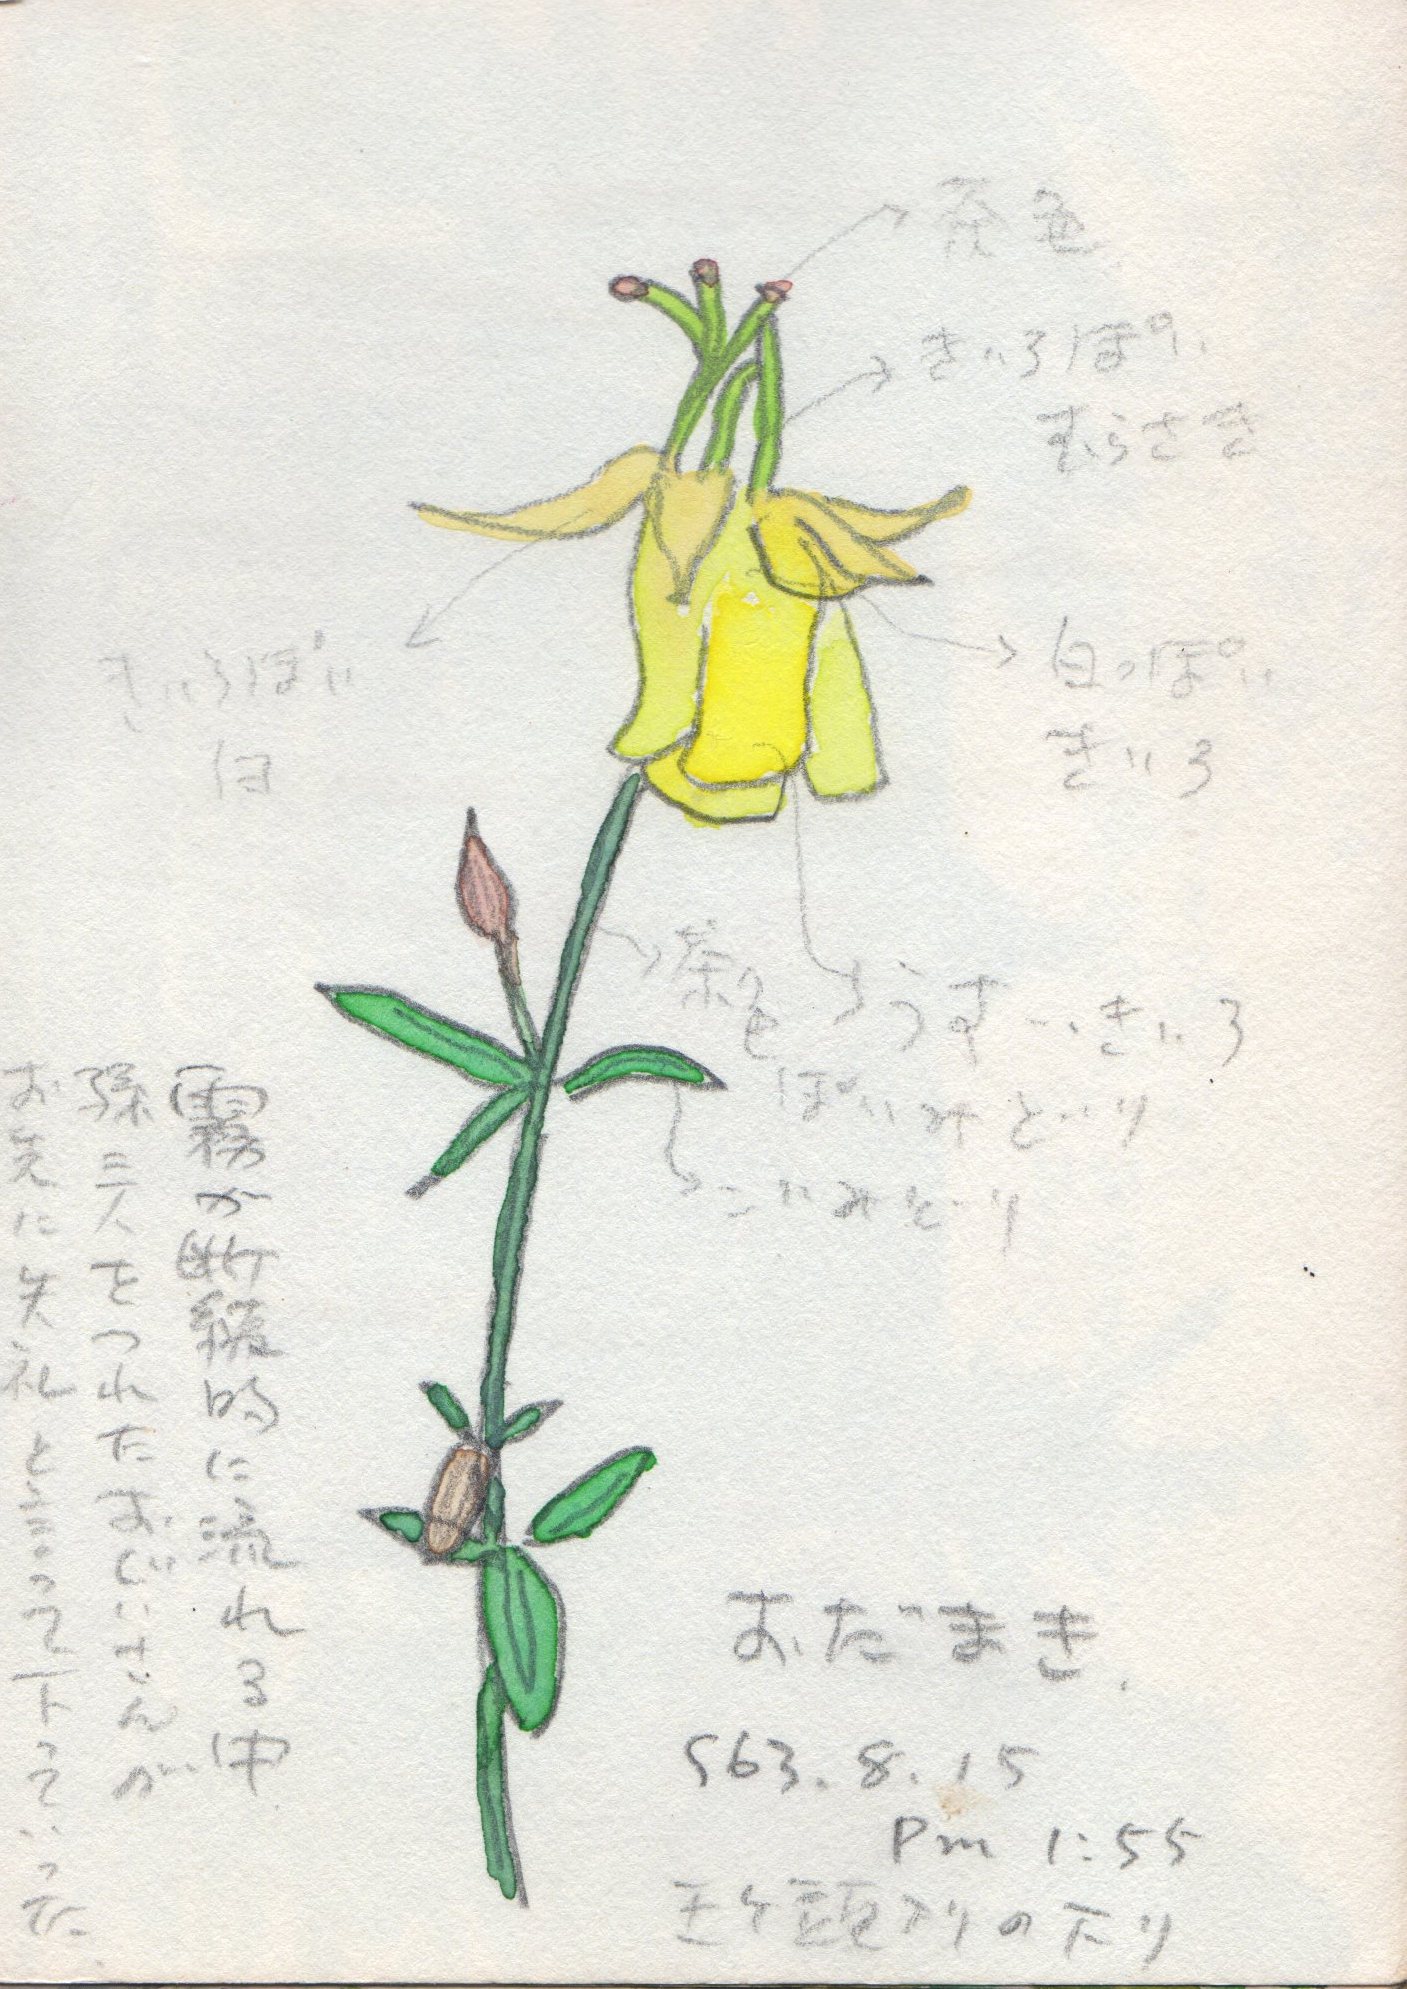 茶色
きいろぽい
むらさき
きいろぽい
白
白っぽい
きいろ
茶色
ぽいみどり
うすーいきいろ
こいみどり
霧が断続的に流れる中
孫三人をつれたおじいさんが
お先に失礼と言って下っていった
おだまき.
S63.8.15
Pm 1:55
王ケ頭
の下り